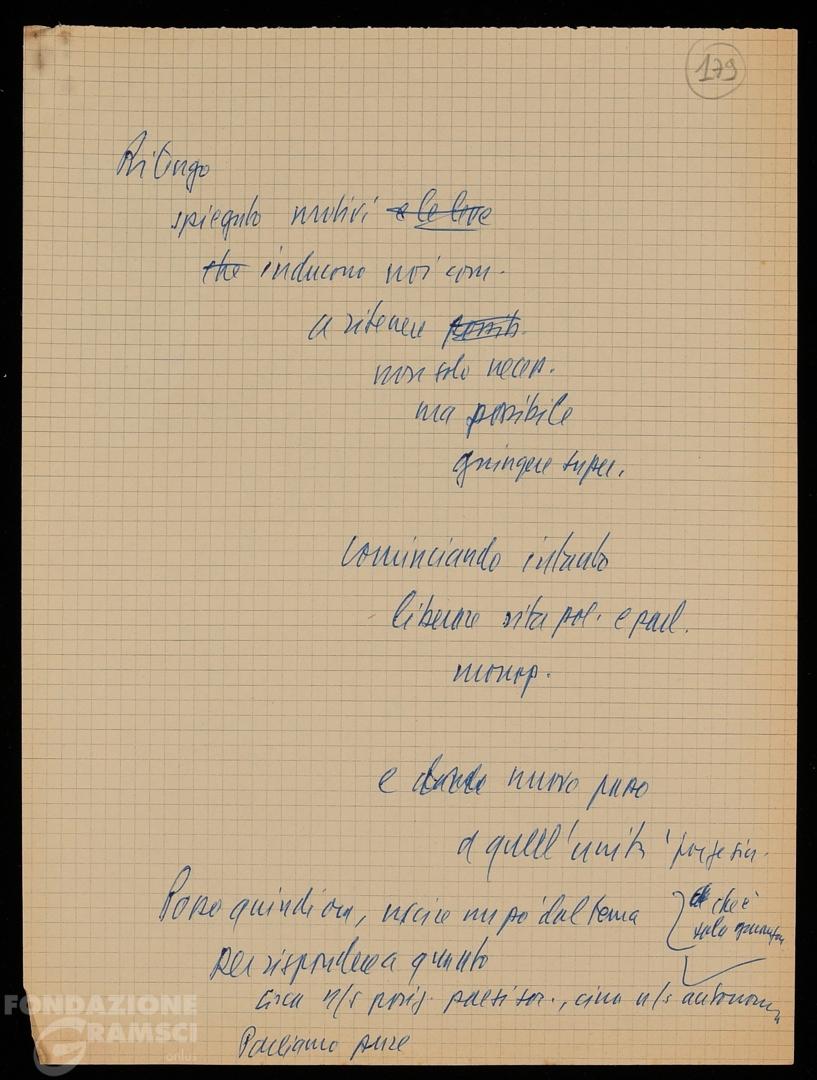 179
Ritengo
spiegato motivi e le live
che inducono noi com.
a ritenere possib.
non solo neces.
ma possibile
giungere super.
cominciando intanto
liberare vita pol. e parl.
monop.
e dando nuovo peso
a quell'unità forze sin.
Posso quindi ora, uscire un po' dal tema
che è
solo
per rispondere a quanto
circa n/s posiz. paesi soc., circa n/s autonomia
Parliamo pure
FONDAZIONE
GRAMSCI
onlus